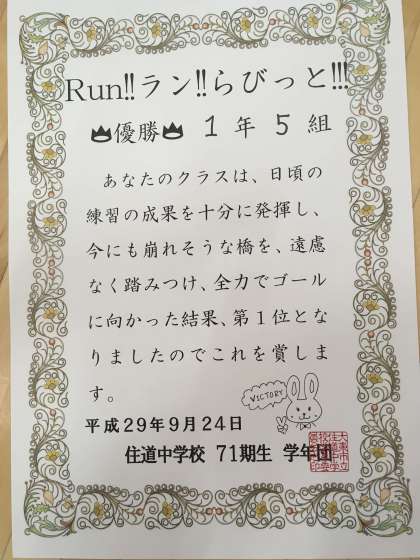 Run!!ラン!!らびっと!!!
優勝 1年5組
あなたのクラスは、日頃の
練習の成果を十分に発揮し、
今にも崩れそうな橋を、遠慮
なく踏みつけ、全力でゴール
に向かった結果、第1位とな
りましたのでこれを賞しま
す。
VICTORY
平成29年9月24日
住道中学校 71期生 学年団